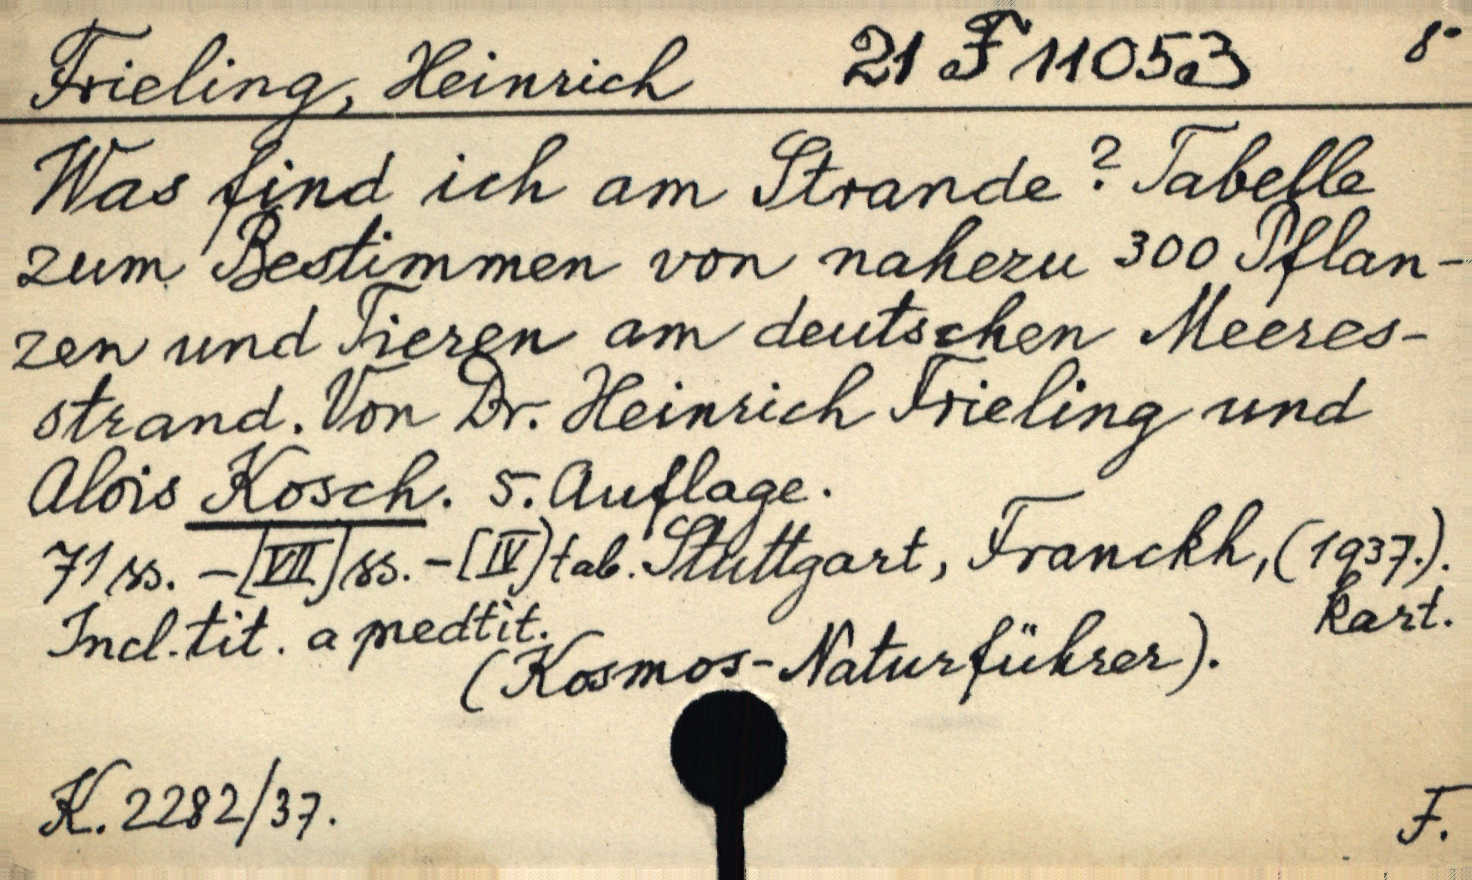 Frieling, Heinrich 21 F 11053 8°
Was find ich am Strande? Tabelle
zum Bestimmen von nahezu 300 Pflan-
zen und Tieren am deutschen Meeres-
strand. Von Dr. Heinrich Frieling und
Alois Kosch. 5. Auflage.
71 ss. - [VII] ss. - [IV) tab. Stuttgart, Franckh, (1937.).
Incl. tit. a predtit. kart.
(Kosmos-Naturführer).
K. 2282/37. F.